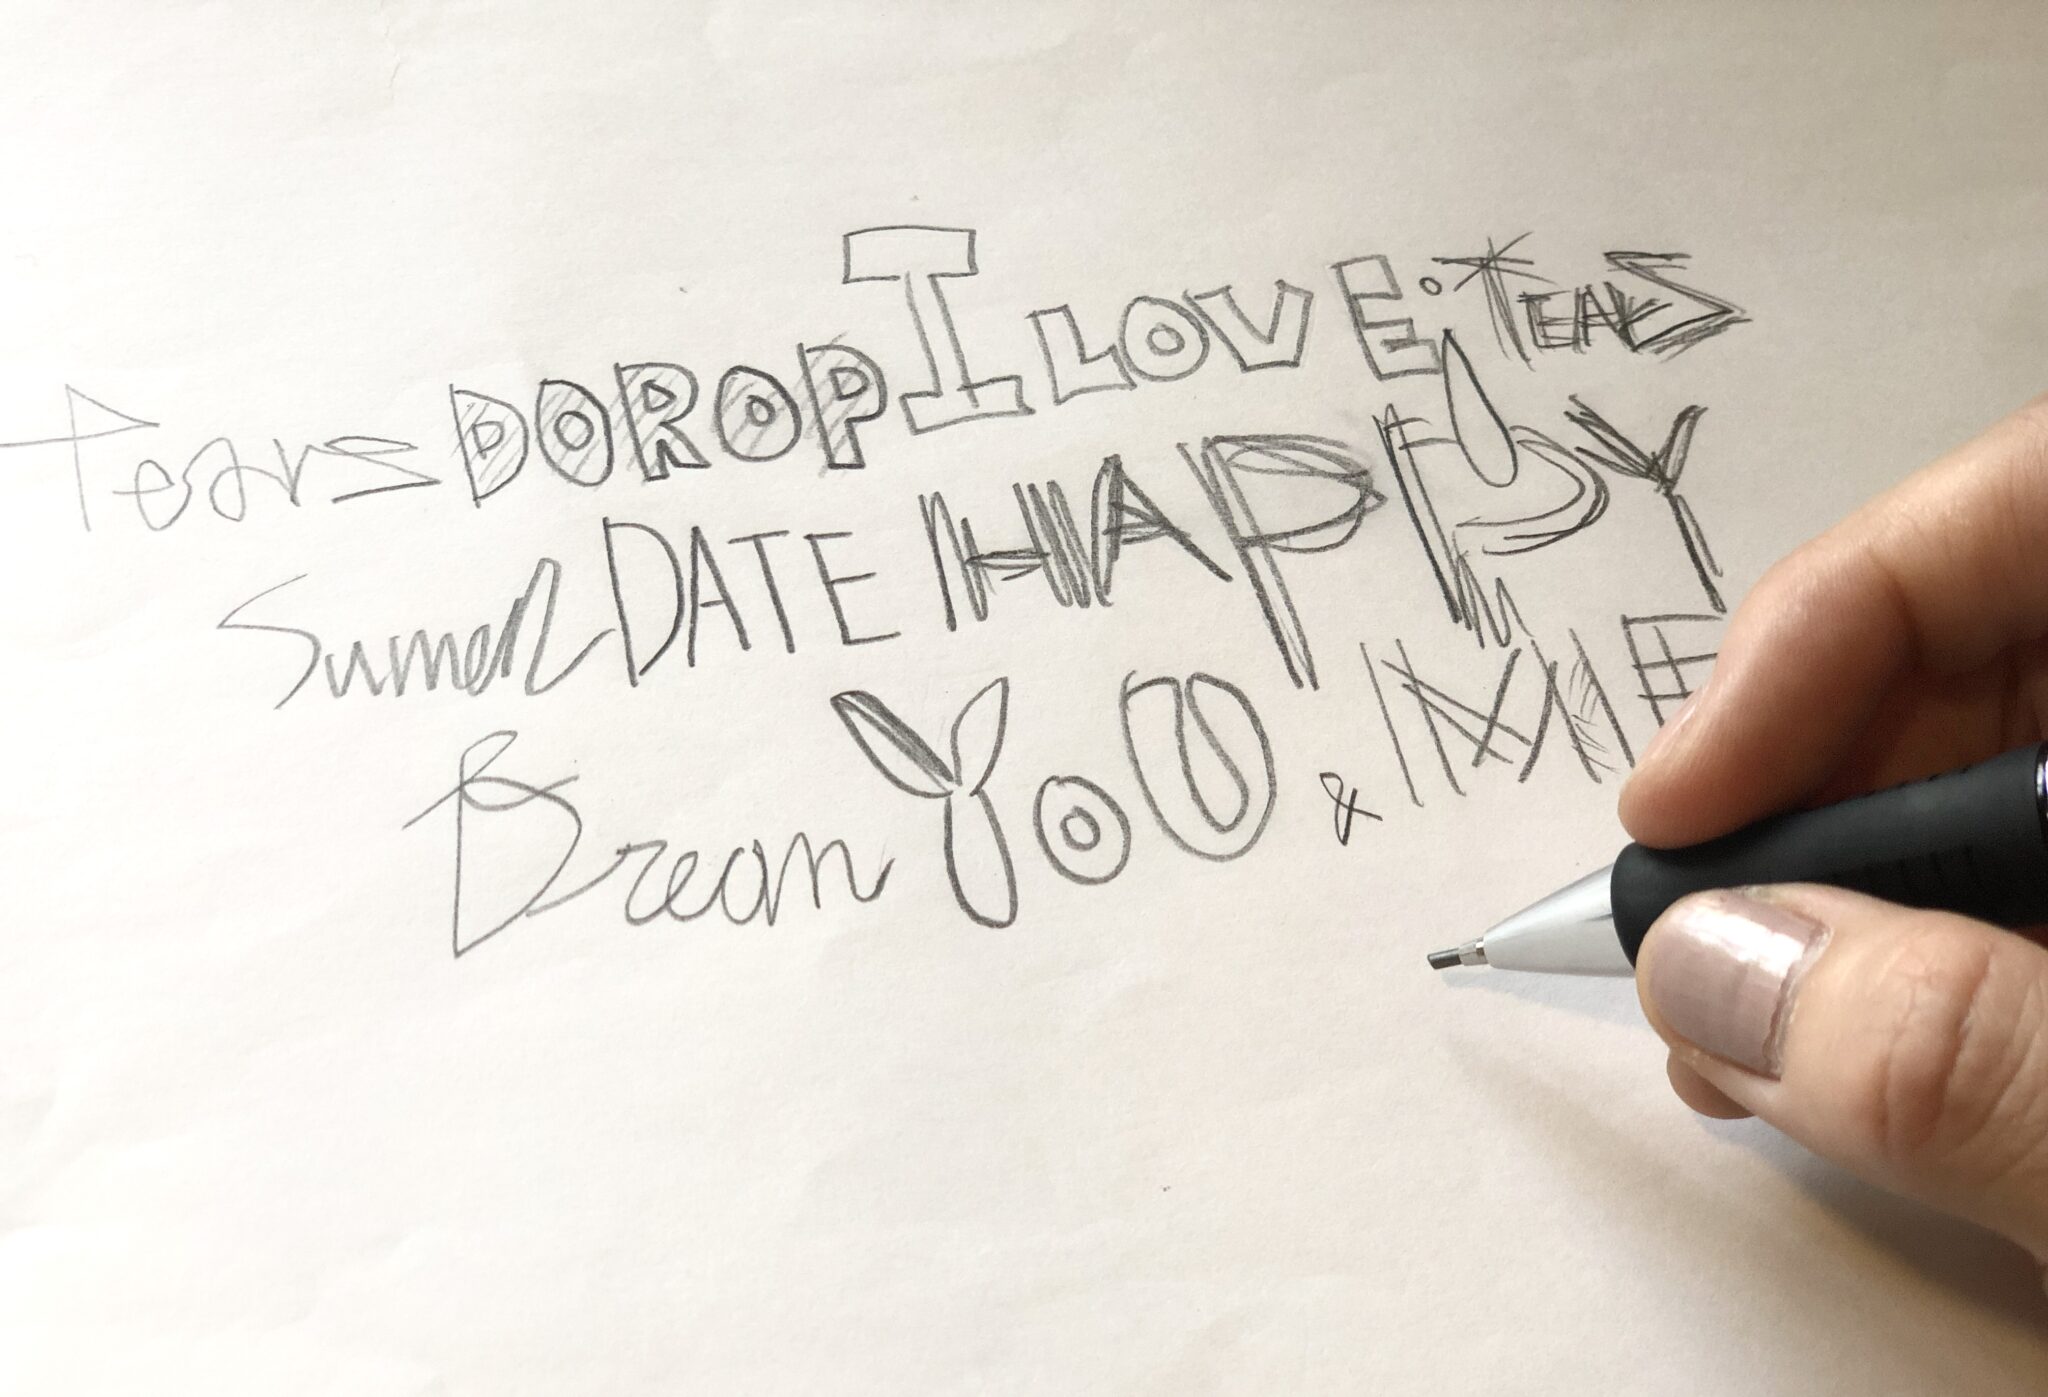 Tears DOROP I LOVE. TEARS
Sumer DATE HAPPY
Dream YOU & ME